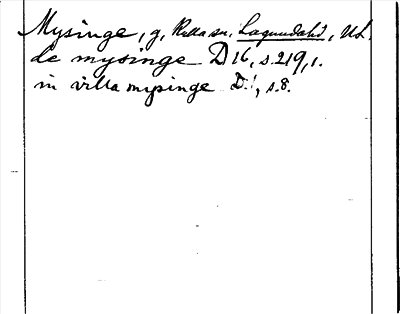 Mysinge, g, Källa sn, Lagundahd, Ul.
de mysinge D 16, s. 219, 1.
in villa mysinge D:1, s. 8.